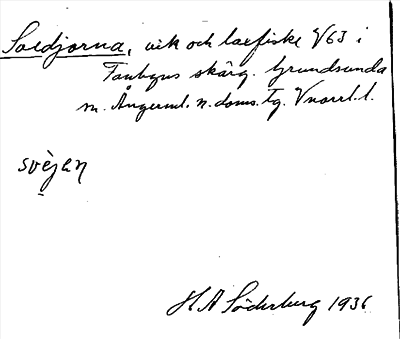 Soldjorna, vik och laxfiske 1/63 i
skärg. Grundsunda
m. Ångerml. n. doms. tg. Vnorrl. l.
svèjen
H A Söderberg 1936